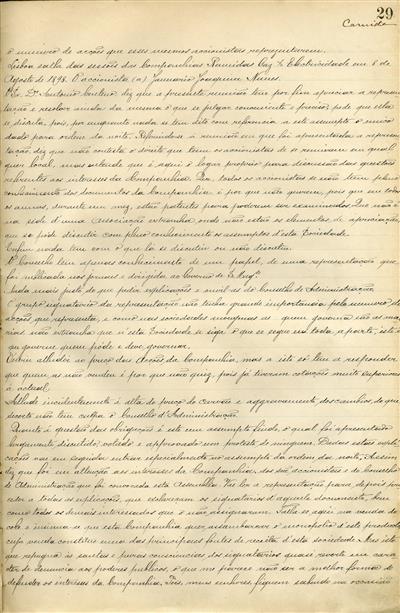 29
Carnide
o numero de acções que esses mesmos accionistas representavam.
Lisboa salla das sessões das Companhias Reunidas Gaz & Electricidade em 6 de
Agosto de 1898. O accionista (a) Januario Joaquim Nunes.
O Ex.mo Sr. Antonio Centeno diz que a presente reunião tem por fim apreciar a represen-
tação e resolver ainda da mesma o que se julgar conveniente e preciso, pede que ella
se discuta, pois, por emquanto nada se tem dito com referencia a este assumpto o unico
dado para ordem da noite. Referindo-se á reunião em que foi apresentada a represen-
tação, diz que não contesta o direito que tem os accionistas de se reunirem em qual
quer local, mas entende que é aqui o logar proprio para discussão das questões
referentes aos interesses da Companhia. Se todos os accionistas se não tem pleno
conhecimento dos documentos da Companhia é por que não querem, pois que em todos
os annos, durante um mez, estão patentes para poderem ser examinados. Que não é
na sede d'uma associação extranha onde não estão os elementos de apreciação,
que se póde discutir com pleno conhecimento os assumptos d'esta Sociedade.
Enfim nada tem com o que lá se discutiu ou não discutiu.
O Conselho tem apenas conhecimento de um papel, de uma representação que
foi publicada nos jornaes e dirigida ao Governo de S. Mag.e
Nada mais justo do que pedir explicações e envial-as ao Conselho de Administração.
O grupo signatario da representação não tinha grande importancia pelo numero de
acções que representa, e como nas sociedades anonymas se quem governa são as mai-
orias não extranha que n'esta Sociedade se siga o que se segue em toda a parte, isto é
que governe quem póde e deve governar.
Ouviu alludir ao preço das acções da Companhia, mas a isto só tem a responder
que quem as não vendeu é por que não quiz, pois já tiveram cotações muito superiores
á actual.
Allude incidentemente á alta do preço do carvão e aggravamento dos cambios, do que
decerto não tem culpa o Conselho d'Administração.
Quanto á questão das obrigações é este um assumpto findo, o qual foi apresentado
largamente discutido, votado e approvado sem protesto de ninguem. Dadas estas expli-
cações vae em seguida entrar especialmente no assumpto da ordem da noite. Assim
diz que foi em attenção aos interesses da Companhia, dos srs. accionistas e do Conselho
de Administração que foi convocada esta Assembléa. Vae ler a representação para depois pro-
ceder a todas as explicações, que esclareçam os signatarios d'aquelle documento, bem
como todos os demais interessados que o não assignaram. Falla-se aqui na venda do
coke e insinua-se que esta Companhia quer assambarcar o monopolio d'este producto
cuja venda constitue uma das principaes fontes de receita d'esta sociedade. Mas isto
que repugna ás santas e puras consciencias dos signatarios quasi reveste um cara-
cter de denuncia aos poderes publicos, o que me parece não ser a melhor fórma de
defender os interesses da Companhia. Pois, meus senhores, fiquem sabendo na occasião